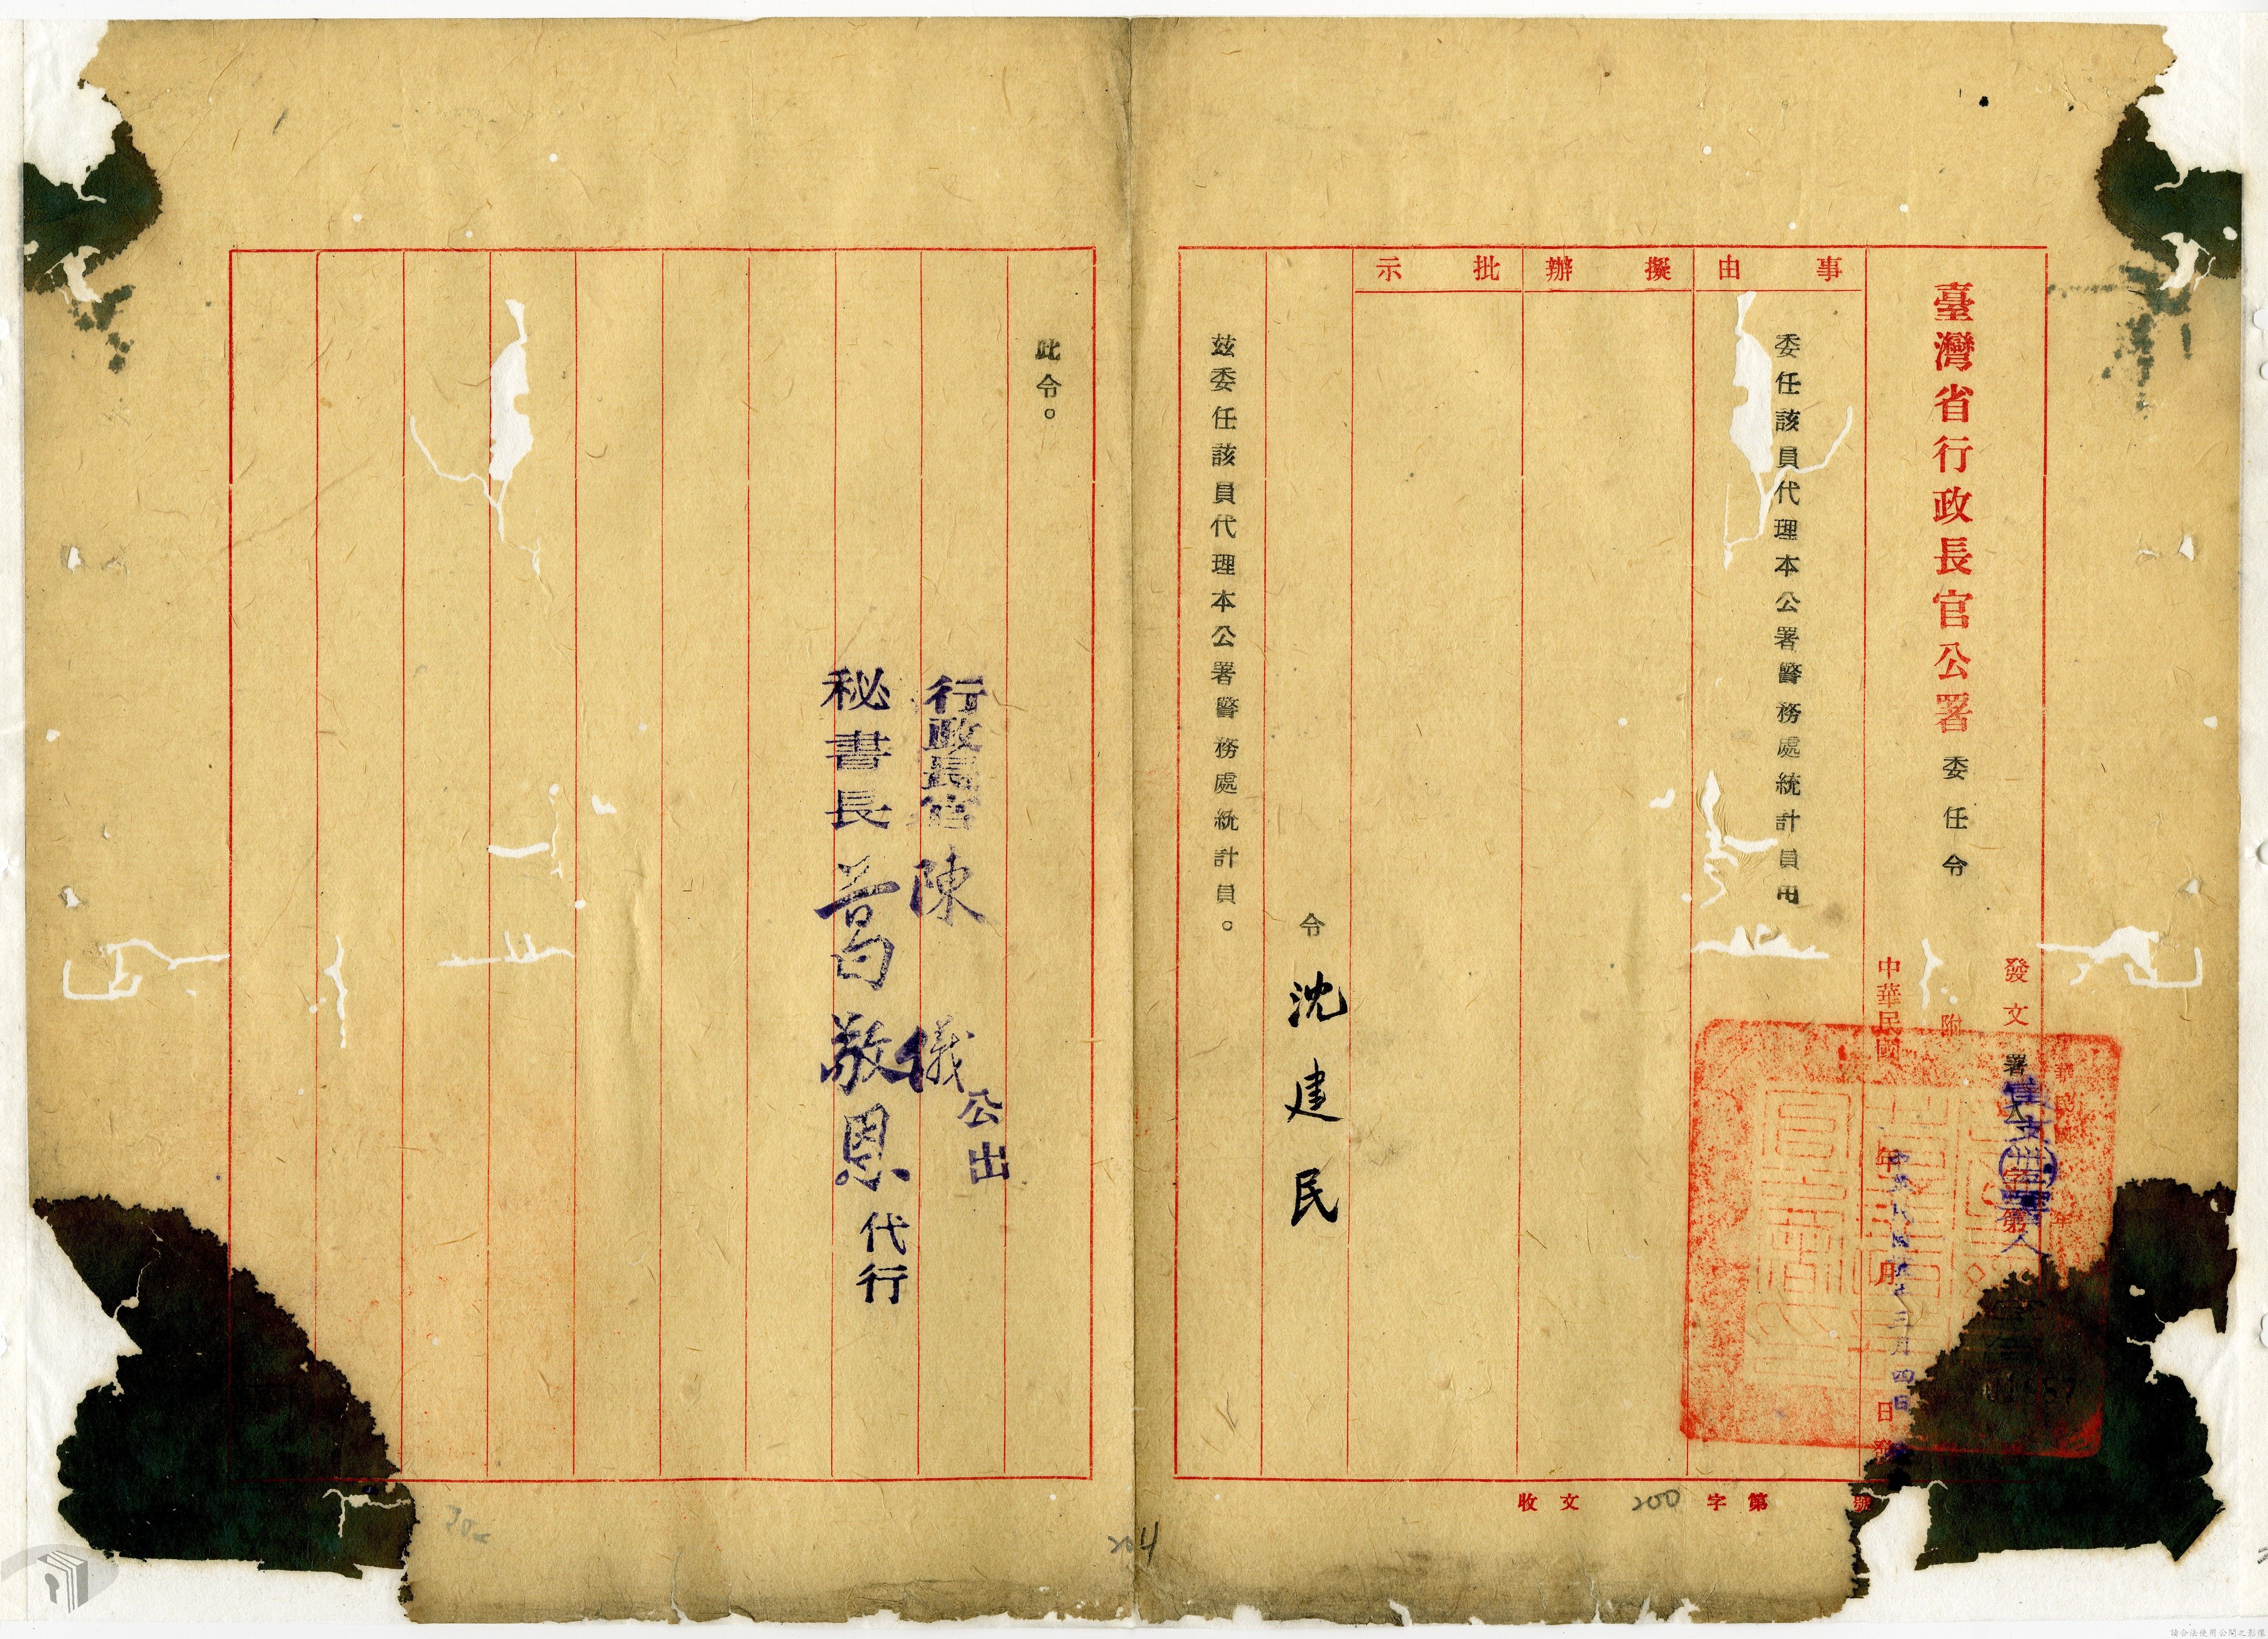 臺灣省行政長官公署 委任令
發文 署
字第
附
中華民國 年 月 日 發
三月四日
事由
委任該員代理本公署警務處統計員由
擬辦
批示
令 沈建民
茲委任該員代理本公署警務處統計員。
此令。
行政長官 陳儀 公出
秘書長 葛敬恩 代行
收文 字第 號
200
204
請合法使用公開之影像